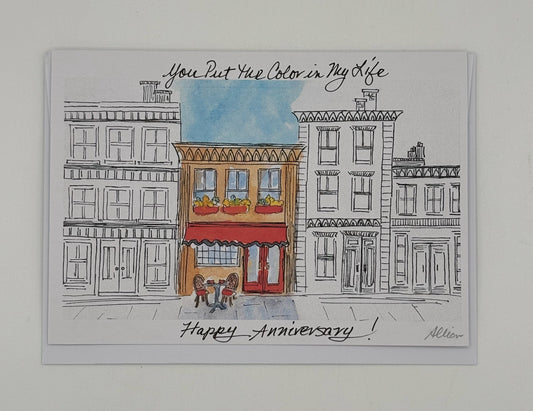 You Put the Color in My Life
Happy Anniversary!